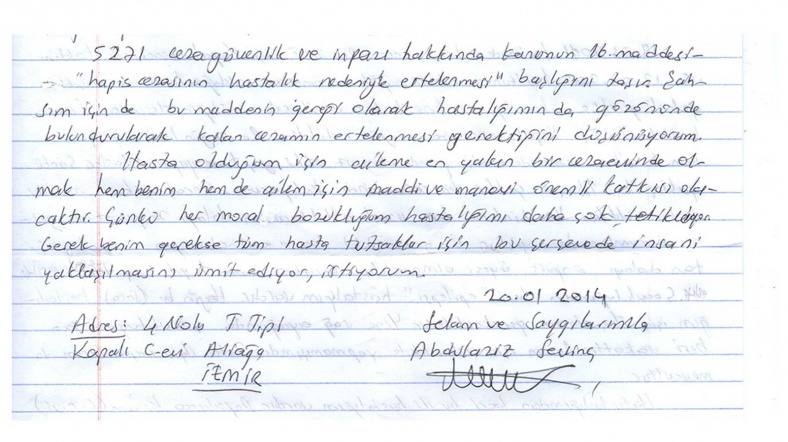 5271 ceza güvenlik ve infazı hakkında kanunun 16. maddesi-
"hapis cezasının hastalık nedeniyle ertelenmesi" başlığını taşır. Şah-
sım için de bu maddenin gereği olarak hastalığımın da gözönünde
bulundurularak kalan cezamın ertelenmesi gerektiğini düşünüyorum.
Hasta olduğum için aileme en yakın bir cezaevinde ol-
mak hem benim hem de ailem için maddi ve manevi önemli katkısı ola-
caktır. Çünkü her moral bozukluğum hastalığımı daha çok tetikliyor.
Gerek benim gerekse tüm hasta tutsaklar için bu çerçevede insani
yaklaşılmasını ümit ediyor, istiyorum.
20.01.2014
Adres: 4 Nolu T Tipi Selam ve Saygılarımla
Kapalı C-evi Aliağa Abdulaziz Sevinç
İZMİR